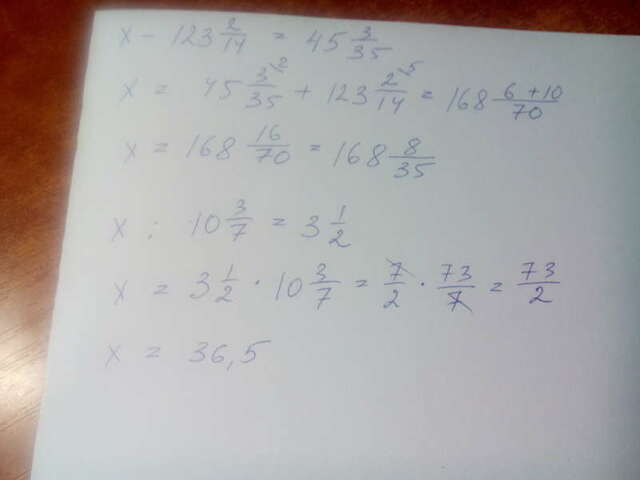 x - 123 2/14 = 45 3/35
x = 45 3/35 ·2 + 123 2/14 ·5 = 168 (6+10)/70
x = 168 16/70 = 168 8/35
x : 10 3/7 = 3 1/2
x = 3 1/2 · 10 3/7 = 7/2 · 73/7 = 73/2
x = 36,5